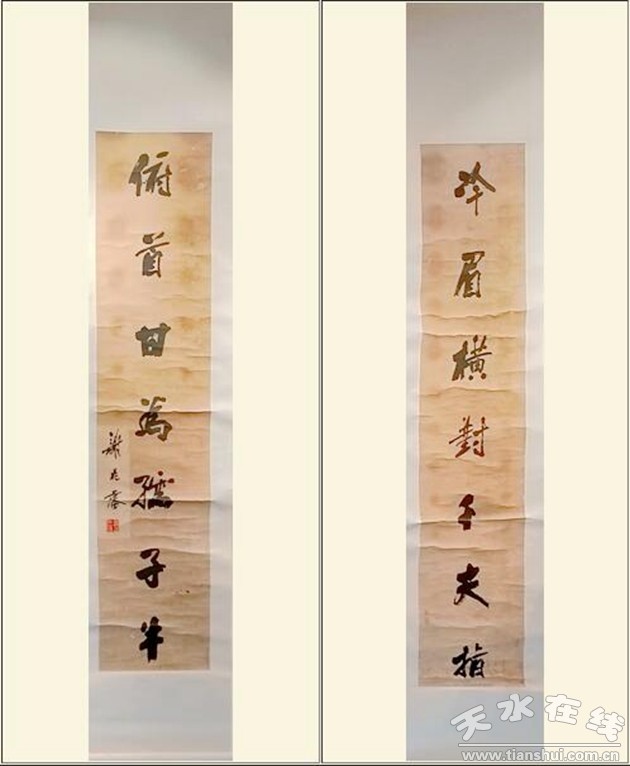 冷眉橫對千夫指
俯首甘為孺子牛
天水在线
www.tianshui.com.cn